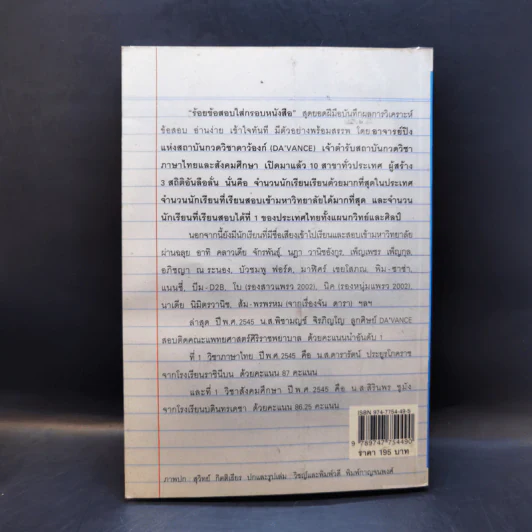 "ร้อยข้อสอบใส่กรอบหนังสือ" สุดยอดฝีมือบันทึกผลการวิเคราะห์
ข้อสอบ อ่านง่าย เข้าใจทันที มีตัวอย่างพร้อมสรรพ โดย อาจารย์ปิง
แห่งสถาบันกวดวิชาดาว้องก์ (DA'VANCE) เจ้าตำรับสถาบันกวดวิชา
ภาษาไทยและสังคมศึกษา เปิดมาแล้ว 10 สาขาทั่วประเทศ ผู้สร้าง
3 สถิติอันลือลั่น นั่นคือ จำนวนนักเรียนเรียนด้วยมากที่สุดในประเทศ
จำนวนนักเรียนที่เรียนสอบเข้ามหาวิทยาลัยได้มากที่สุด และจำนวน
นักเรียนที่เรียนสอบได้ที่ 1 ของประเทศไทยทั้งแผนกวิทย์และศิลป์
นอกจากนี้ยังมีนักเรียนที่มีชื่อเสียงเข้าไปเรียนและสอบเข้ามหาวิทยาลัย
ผ่านฉลุย อาทิ คลาวเดีย จักรพันธุ์, นฎา วานิชอังกูร, เพ็ญเพชร เพ็ญกุล,
อภิชญา ณ ระนอง, บัวชมพู ฟอร์ด, มาฬิศร์ เชยโสภณ, พิม-ซาซ่า,
แนนซี่, บีม-D2B, โบ (รองสาวแพรว 2002), นิค (รองหนุ่มแพรว 2002),
นาเดีย นิมิตรวานิช, ส้ม-พรพรหม (จากเรื่องจัน ดารา) ฯลฯ
ล่าสุด ปีพ.ศ. 2545 น.ส.พิชามญชุ์ จิรภิญโญ ลูกศิษย์ DA'VANCE
สอบติดคณะแพทยศาสตร์ศิริราชพยาบาล ด้วยคะแนนนำอันดับ 1
ที่ 1 วิชาภาษาไทย ปีพ.ศ. 2545 คือ น.ส.ดารารัตน์ ประยูรโภคราช
จากโรงเรียนราชินีบน ด้วยคะแนน 87 คะแนน
และที่ 1 วิชาสังคมศึกษา ปี พ.ศ. 2545 คือ น.ส.สิรินพร ชูมัง
จากโรงเรียนบดินทรเดชา ด้วยคะแนน 86.25 คะแนน
ISBN 974-7754-49-9
9 789747 754490
ราคา 195 บาท
ภาพปก : สุวิทย์ กิตติเธียร ปกและรูปเล่ม : วิชญ์และพิมพ์วดี พิมพ์กาญจนพงศ์